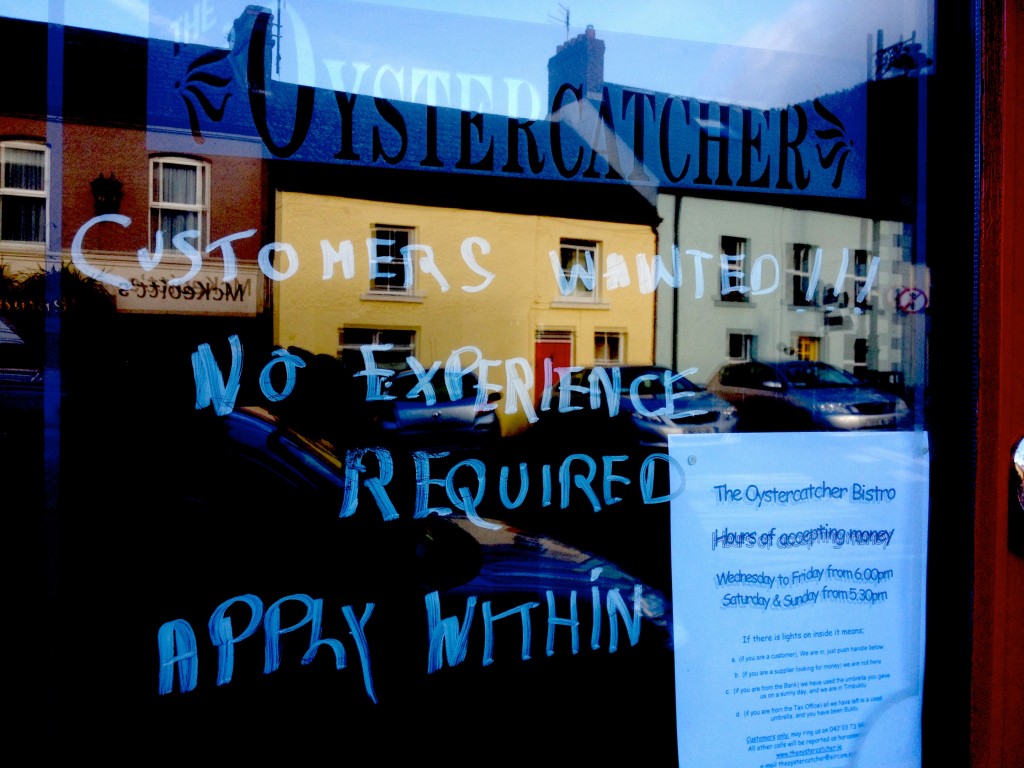 THE
OYSTERCATCHER
McKevitt's
CUSTOMERS WANTED!!!
NO EXPERIENCE
REQUIRED
APPLY WITHIN
The Oystercatcher Bistro
Hours of accepting money
Wednesday to Friday from 6.00pm
Saturday & Sunday from 5.30pm
If there is lights on inside it means;
a. (if you are a customer), We are in, just push handle below
b. (if you are a supplier looking for money) we are not here
c. (if you are from the Bank) we have used the umbrella you gave
us on a sunny day, and we are in Timbuktu
d. (if you are from the Tax Office) all we have left is a used
umbrella, and you have been
Customers only, may ring us on 042 93 73
All other calls will be reported as
www.theoystercatcher.ie
e-mail theoystercatcher@eircom